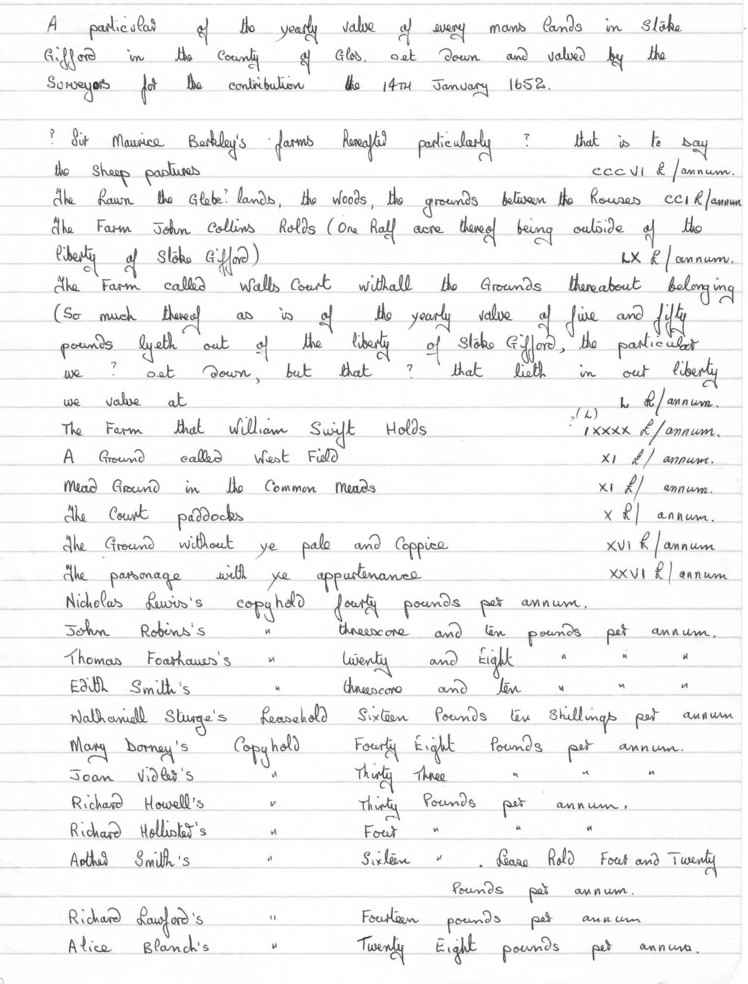 A particular of the yearly value of every mans lands in Stoke
Gifford in the County of Glos. set down and valued by the
Surveyors for the contribution the 14TH January 1652.
? Sir Maurice Berkley's farms hereafter particularly ? that is to say
the Sheep pastures CCCVI £/annum.
The Lawn the Glebe? lands, the woods, the grounds between the houses CCI £/annum
The Farm John Collins holds (One half acre thereof being outside of the
liberty of Stoke Gifford) LX £/annum.
The Farm called Walls Court withall the Grounds thereabout belonging
(So much thereof as is of the yearly value of five and fifty
pounds lyeth out of the liberty of Stoke Gifford, the particular
we ? set down, but that ? that lieth in our liberty
we value at L £/annum.
The Farm that William Swift Holds ?(L) IXXXX £/annum.
A Ground called West Field XI £/annum.
Mead Ground in the Common Meads XI £/annum.
The Court paddocks X £/annum.
The Ground without ye pale and Coppice XVI £/annum
The parsonage with ye appurtenance XXVI £/annum
Nicholas Lewis's copyhold fourty pounds per annum.
John Robins's " threescore and ten pounds per annum.
Thomas Foarhaues's " twenty and Eight " " "
Edith Smith's " threescore and ten " " "
Nathaniell Sturge's Leasehold Sixteen Pounds ten Shillings per annum
Mary Dorney's Copyhold Fourty Eight Pounds per annum.
Joan Vidler's " Thirty Three " " "
Richard Howell's " Thirty Pounds per annum.
Richard Hollister's " Four " " "
Arther Smith's " Sixteen " . Lease Hold Four and Twenty
Pounds per annum.
Richard Lawford's " Fourteen pounds per annum
Alice Blanch's " Twenty Eight pounds per annum.